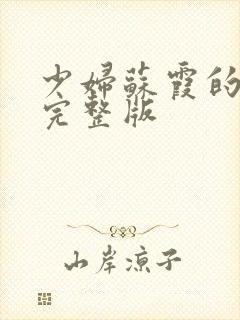 少婦蘇霞的
完整版
山岸涼子